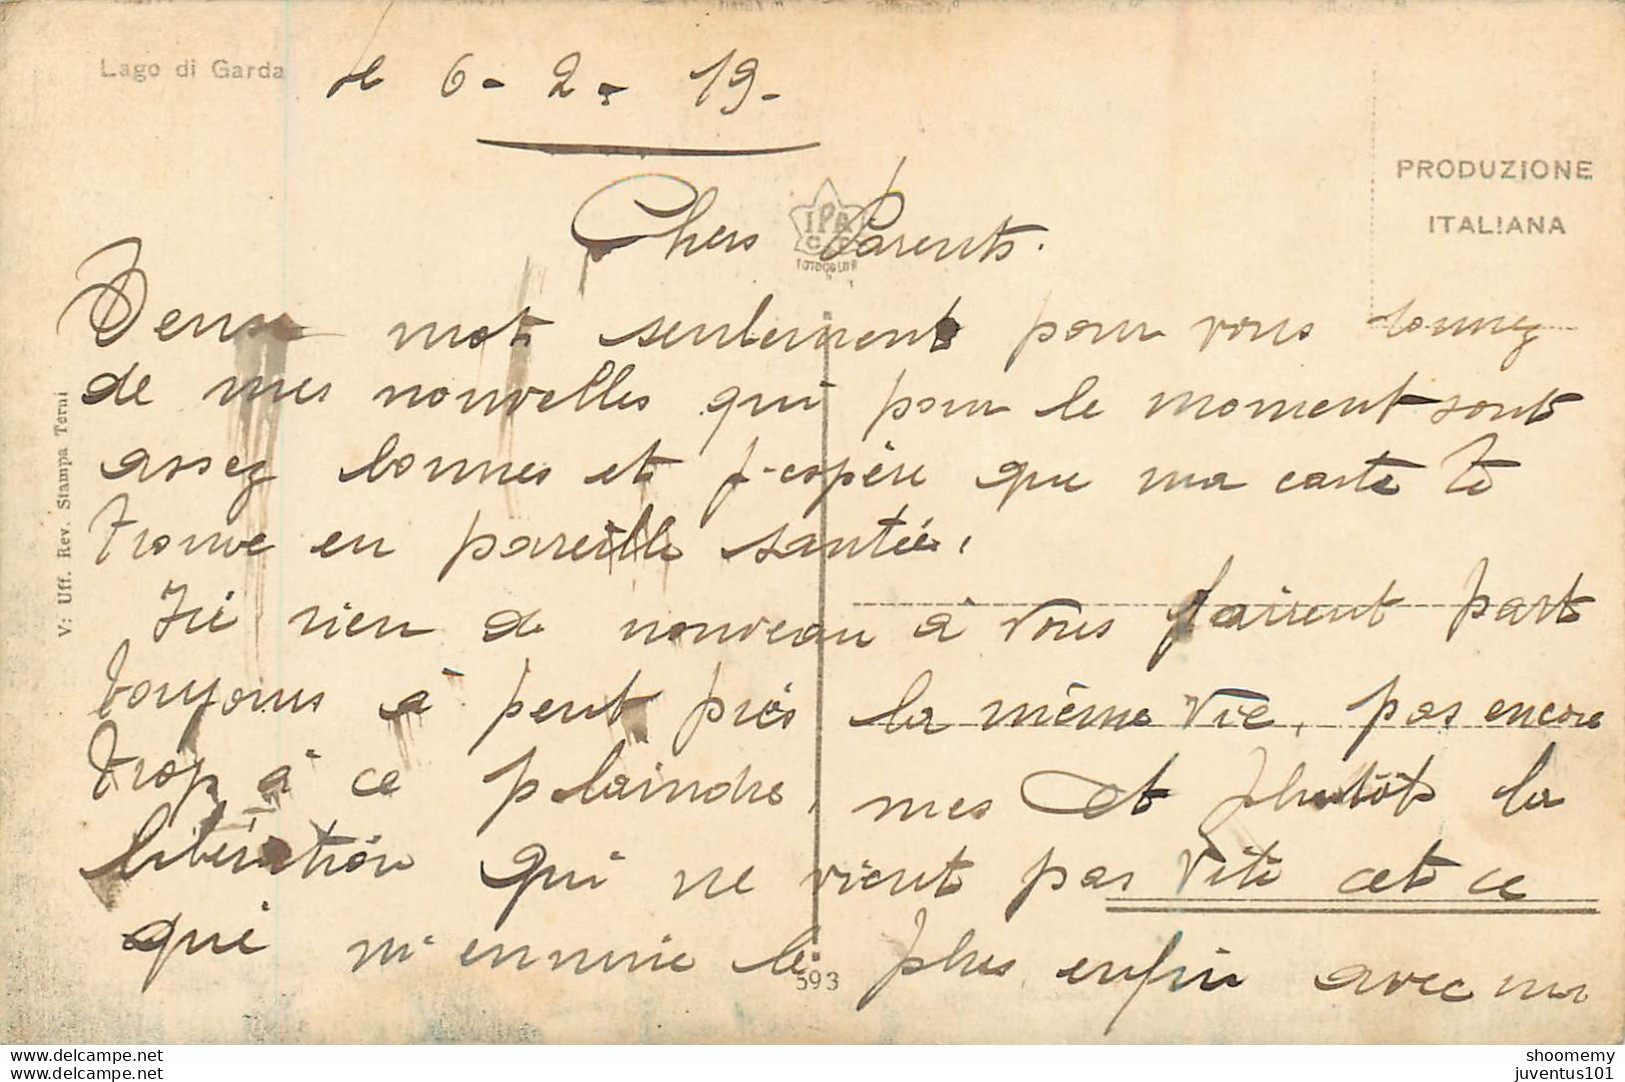 Lago di Garda
le 6-2-19-
PRODUZIONE
ITALIANA
IPA
C.T
FOTOCOLOR
Chers Parents.
Deux mot seulement pour vous donnez
de mes nouvelles qui pour le moment sont
assez bonnes et j-espère que ma carte te
trouve en pareille santée,
Ici rien de nouveau à vous fairent part
toujours à peut près la même vie, pas encore
trop à ce plaindre, mes et plutôt la
libération qui ne vient pas vite cet ce
qui m'ennuie le plus enfin avec un
V: Uff. Rev. Stampa Terni
593
delcampe.net
delcampe.net
shoomemy
juventus101